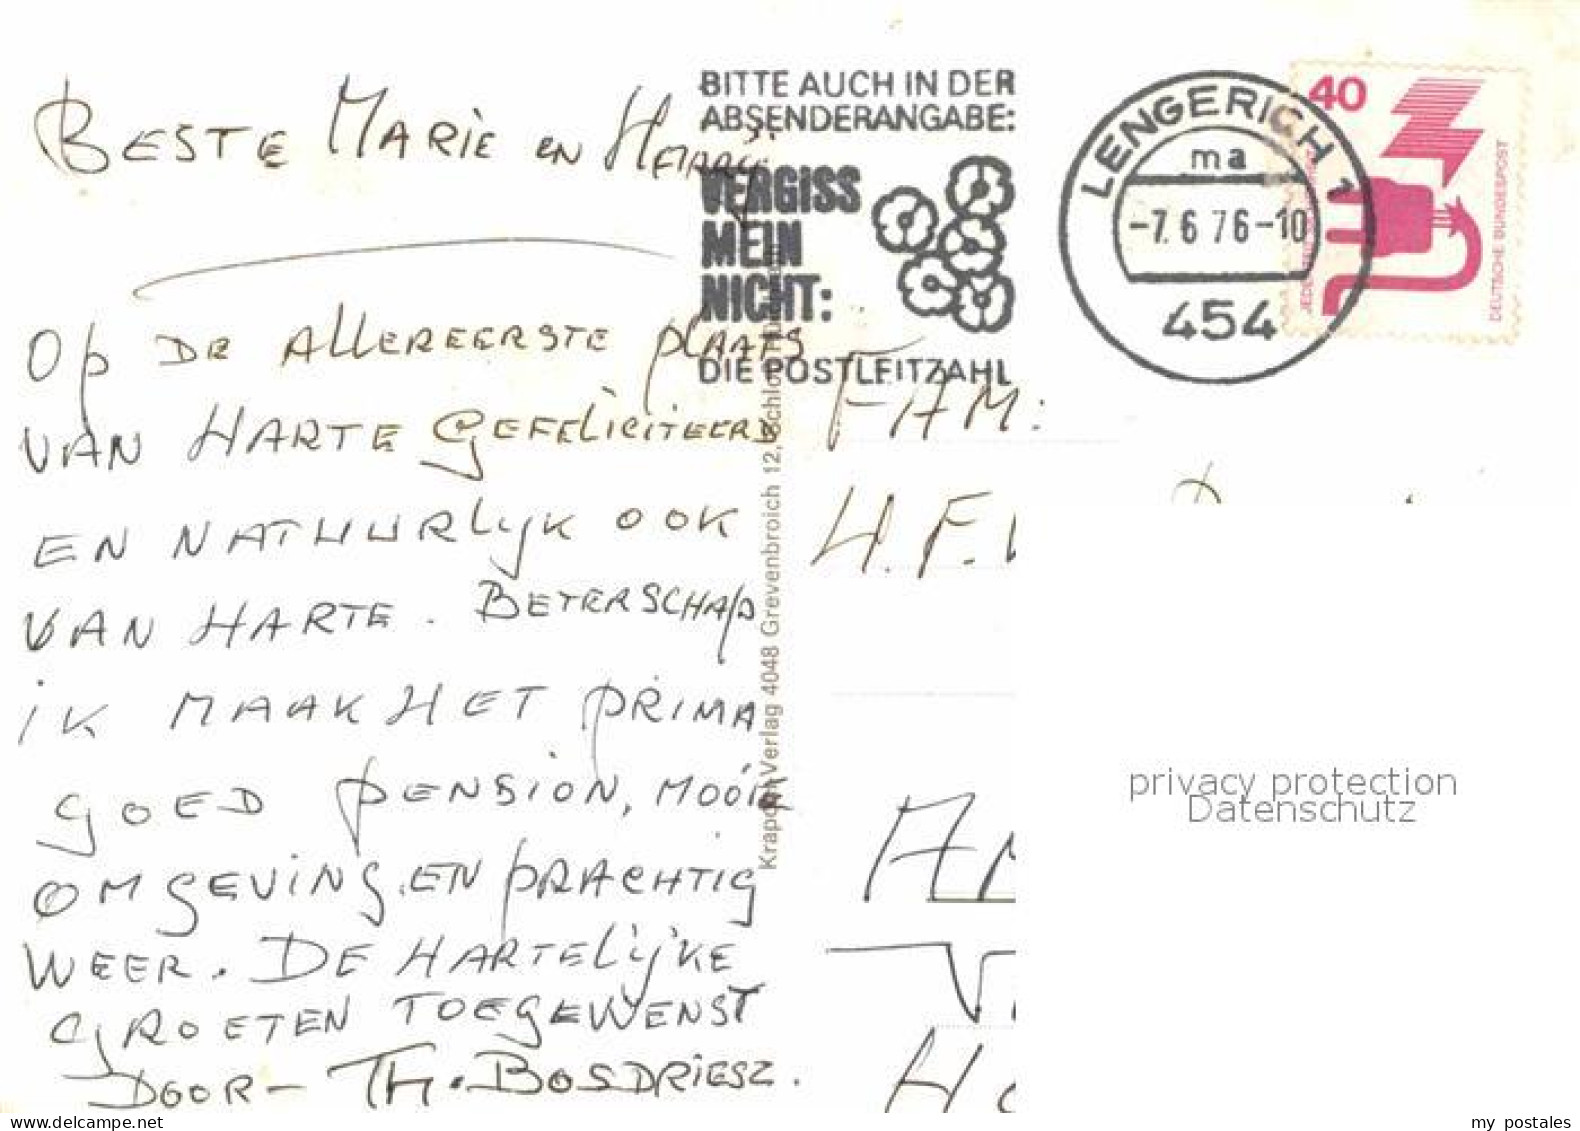 BESTE MARIE EN HENNY
OP DE ALLEREERSTE PLAATS
VAN HARTE GEFELICITEERD
EN NATUURLIJK OOK
VAN HARTE. BETERSCHAP
IK MAAK HET PRIMA
GOED PENSION, MOOIE
OMGEVING, EN PRACHTIG
WEER. DE HARTELIJKE
GROETEN TOEGEWENST
DOOR - TH. BOSDRIESZ.
BITTE AUCH IN DER
ABSENDERANGABE:
VERGISS
MEIN
NICHT:
DIE POSTLEITZAHL
LENGERICH 1
ma
-7.6.76-10
454
40
DEUTSCHE BUNDESPOST
Verlag 4048 Grevenbroich 12,
FAM:
H. F.
privacy protection
Datenschutz
my postales
www.delcampe.net